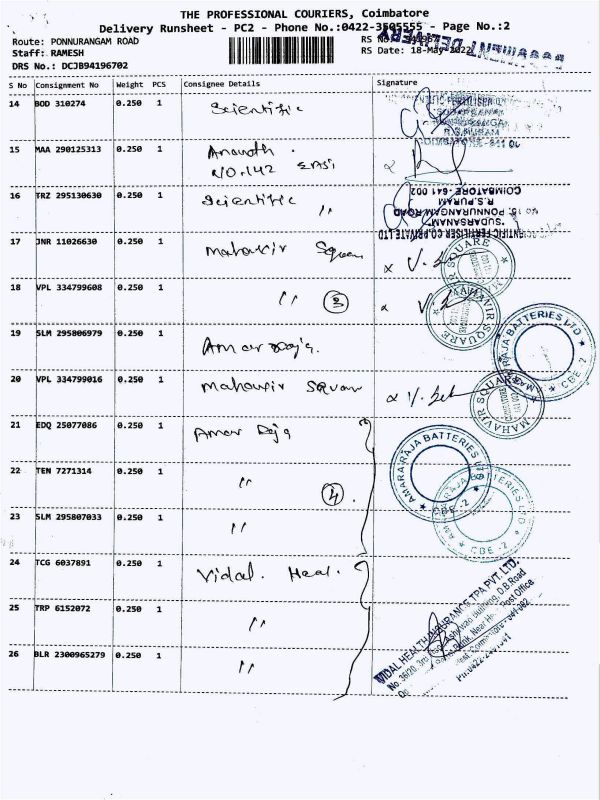 THE PROFESSIONAL COURIERS, Coimbatore
Delivery Runsheet - PC2 - Phone No.:0422-3505555 - Page No.:2
Route: PONNURANGAM ROAD
RS No.:
Staff: RAMESH
RS Date: 18-May-2022
DRS No.: DCJB94196702
S No Consignment No Weight PCS Consignee Details Signature
14 BOD 310274 0.250 1 Scientific
R.S.PURAM
15 MAA 290125313 0.250 1 Ananth.
NO.142
16 TRZ 295130630 0.250 1 Scientific 〃
SCIENTIFIC FERTILISER CO.PRIVATE LTD
"SUDARSANAM"
No 15. PONNURANGAM ROAD
R.S.PURAM
COIMBATORE - 641 002
17 JNR 11026630 0.250 1 Mahavir Square
MAHAVIR SQUARE
18 VPL 334799608 0.250 1 〃 3
MAHAVIR SQUARE
19 SLM 295806979 0.250 1 Amar Raja.
AMARA RAJA BATTERIES LTD
CBE - 2
20 VPL 334799016 0.250 1 Mahavir Square
MAHAVIR SQUARE
21 EDQ 25077086 0.250 1 Amar Raja
AMARA RAJA BATTERIES LTD
CBE - 2
22 TEN 7271314 0.250 1 〃 4.
AMARA RAJA BATTERIES LTD
CBE - 2
23 SLM 295807033 0.250 1 〃
24 TCG 6037891 0.250 1 Vidal. Heal.
25 TRP 6152072 0.250 1 〃
26 BLR 2300965279 0.250 1 〃
VIDAL HEALTH INSURANCE TPA PVT. LTD.
No. 36/20, 3rd Building, D.B.Road
Bank, Near Head Post Office